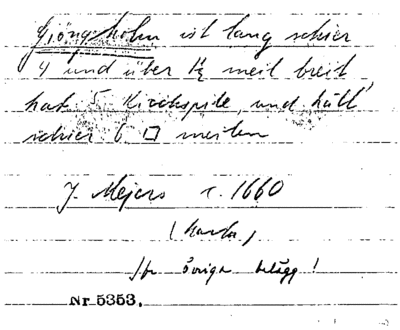 Giöngeholm ist lang schier
4 und über 1½ meil breit,
hat 5 Kirchspile, und hält
schier 6 □ meilen
J. Mejers c. 1660
(karta)
Jfr övriga belägg!
Nr 5353.